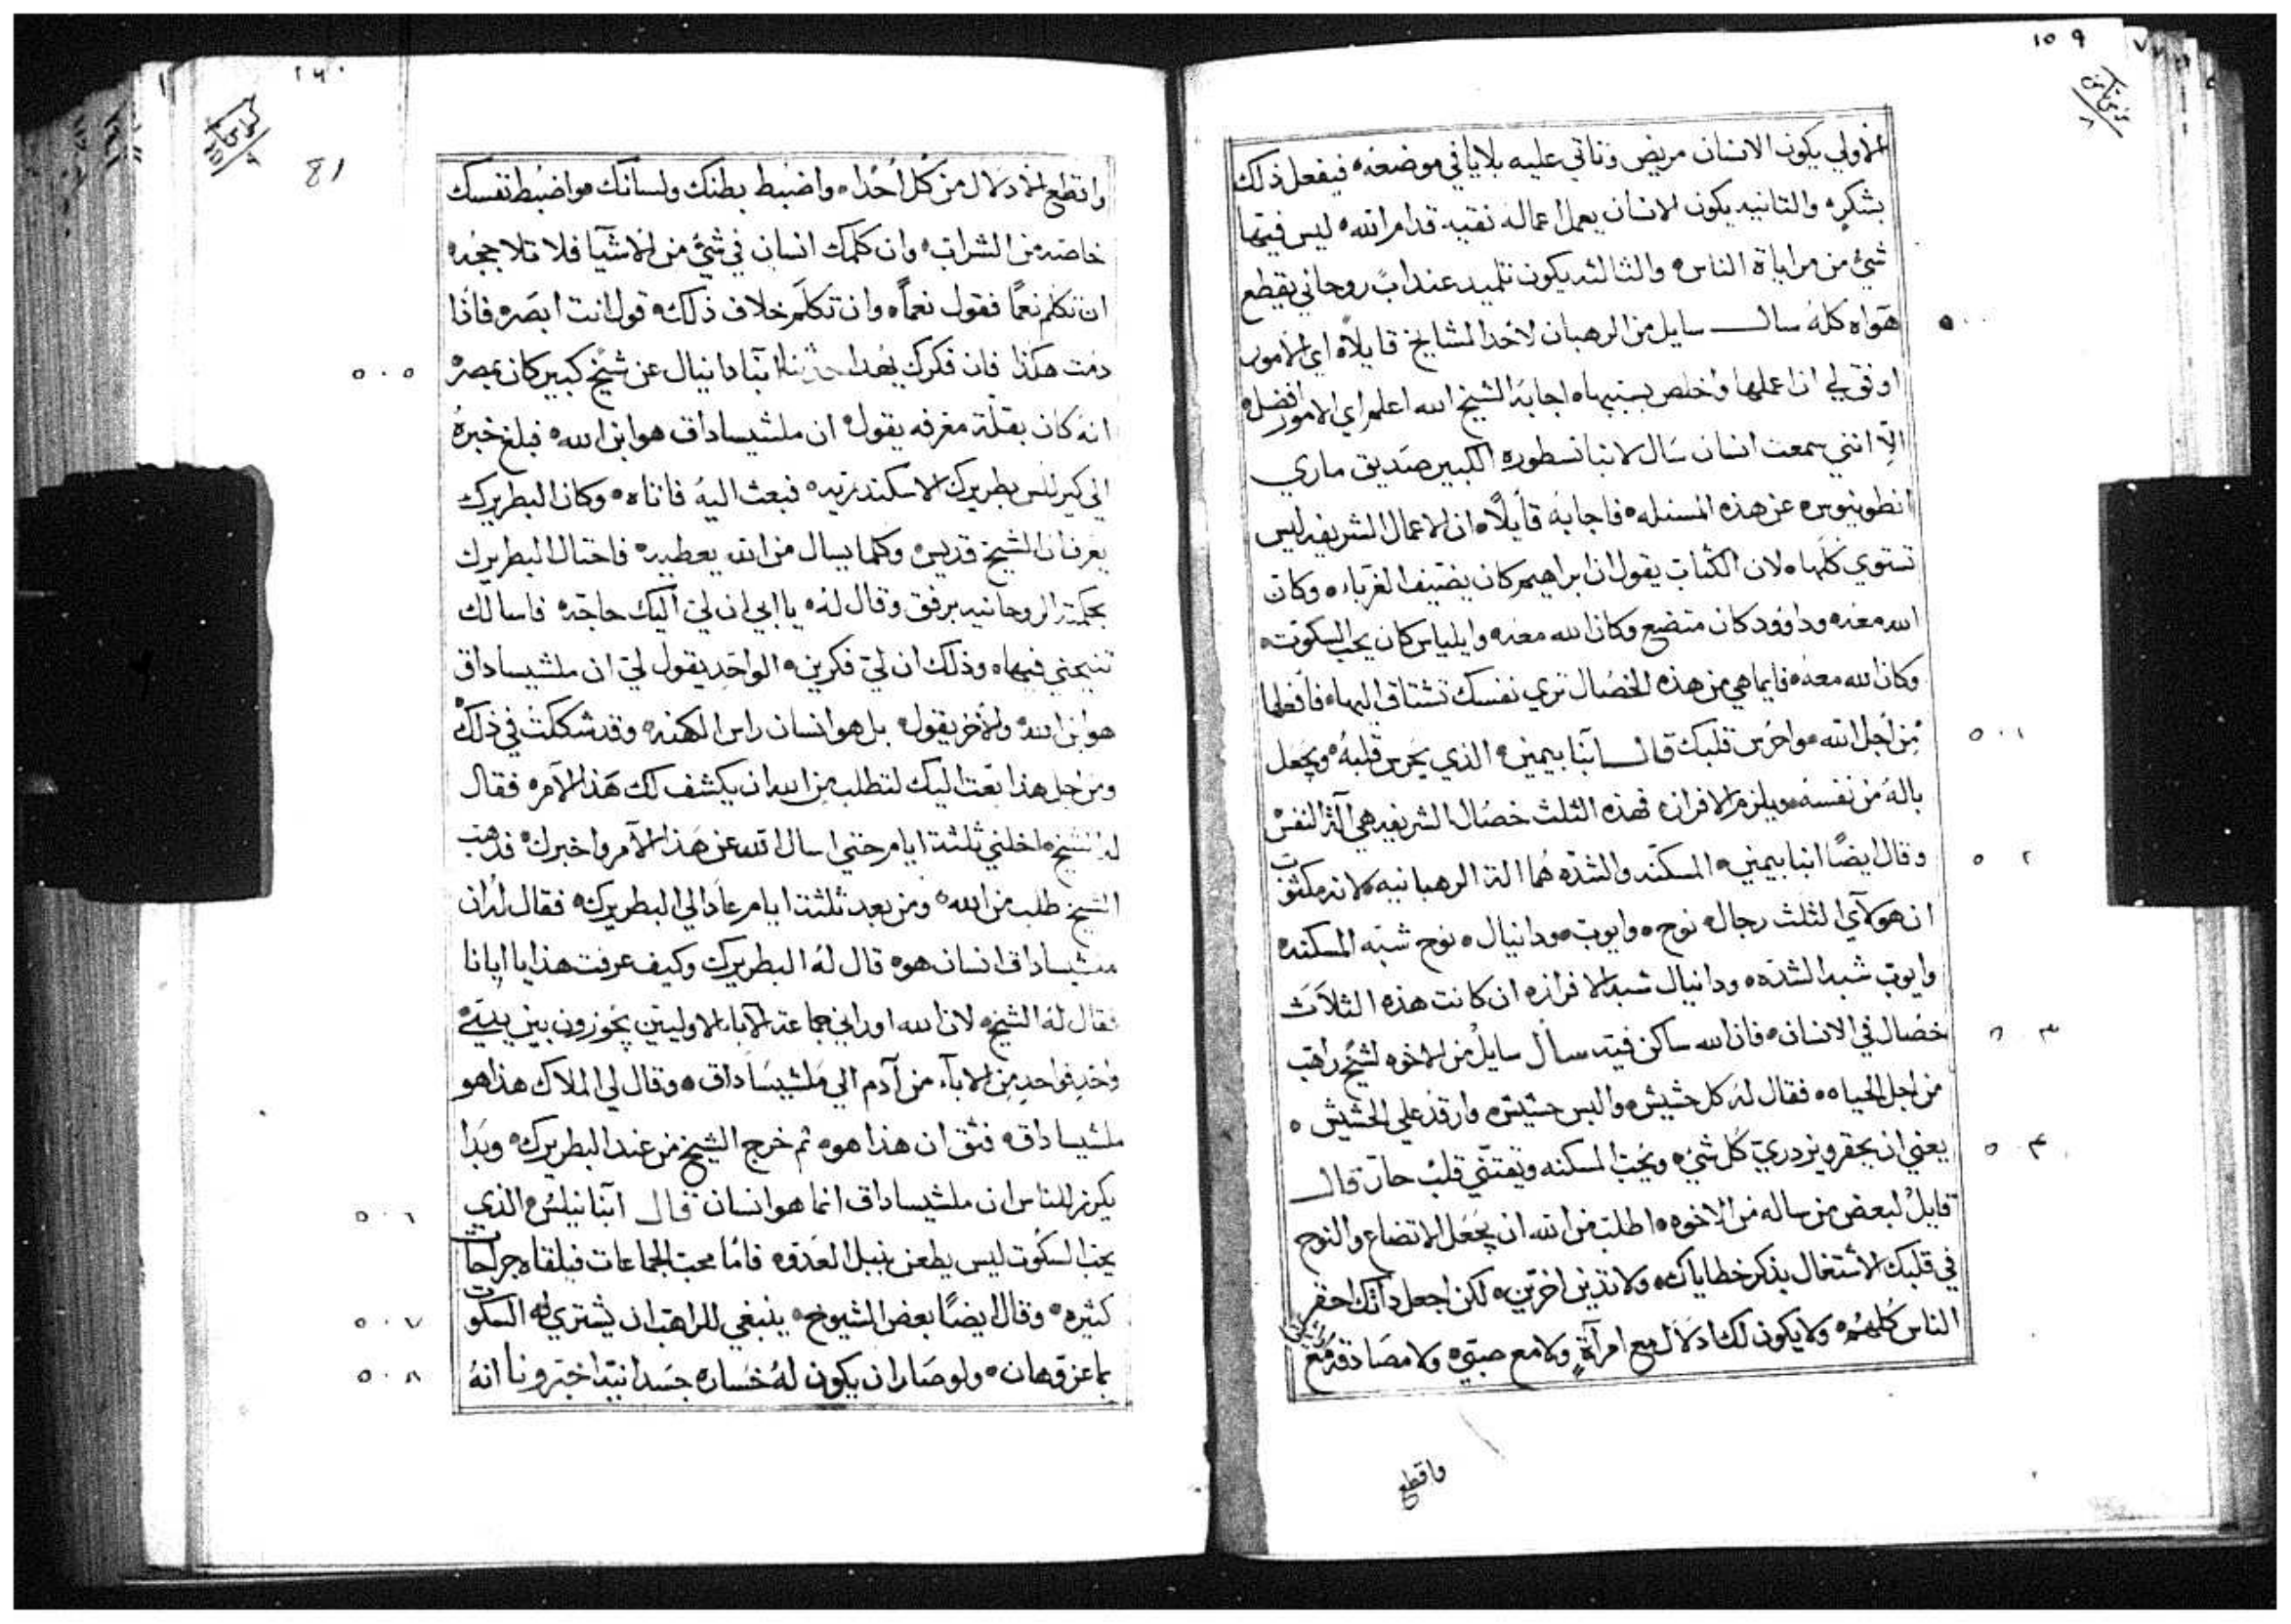 ١٥٩
الاولي يكون الانسان مريض وتاتي عليه بلايا في موضعه٥ فيفعل ذلك
بشكر٥ والثانيه يكون الانسان يعمل اعماله نقيه قدام الله٥ ليس فيها
شيء من مراياة الناس٥ والثالثه يكون تلميد عند ابً روحاني يقطع
هواه كله سال سايل من الرهبان لاحد المشايخ قايلاً٥ اي الامور
٥٠٠
اوفق لي ان اعملها واخلص بسببها٥ اجابه الشيخ الله اعلم اي الامور افضل٥
الّا انني سمعت انسان سَال لانبا نسطوره الكبير صَديق ماري
انطونيوس٥ عن هذه المسئله٥ فاجابه قايلاً٥ ان الاعمال الشريفه ليس
تستوي كلها٥ لان الكتاب يقول ان ابراهيم كان يضيف الغرباء٥ وكان
الله معه٥ وداوود كان متضع وكان الله معه٥ وايلياس كان يحب السكوت٥
وكان الله معه٥ فايما هي من هذه الخصال تري نفسك تشتاق اليها٥ فافعلها
مِن اجل الله٥ واحرس قلبك قال ابّا بيمين٥ الذي يحرس قلبهُ٥ ويجعل
٥٠١
بالهُ من نفسه٥ ويلزم الافراز٥ فهذه الثلث خصال الشريفه هي آلة النفس
وقال ايضًا انبا بيمين٥ المسكنه والشدّه هُما الة الرهبانيه٥ لانه مكتوب
٥٠٢
ان هولآي الثلث رجال٥ نوح٥ وايوب٥ ودانيال٥ نوح شبّه المسكنه٥
وايوب شبه الشده٥ ودانيال شبه الافراز٥ ان كانت هذه الثلاَث
خصال في الانسان٥ فان الله ساكن فيه سال سايلُ من الاخوه لشيخ راهب
٥٠٣
من اجل الحياه٥ فقال له كل حشيش٥ والبس حشيش٥ وارقد علي الحشيش٥
يعني ان يحقر ويزدريّ كُل شيء٥ ويحب المسكنه ويقتني قلبْ حارّ قال
٥٠٤
قايلُ لبعض من ساله من الاخوه٥ اطلب من الله ان يجعل الاتضاع والنوح
في قلبك الاشتغال بذكر خطاياك٥ ولا تدين اخرين٥ لكن اجعل داتك احقر
الناس كُلهم٥ ولا يكون لك ادلال مع امرآةٍ ولا مع صبيّ٥ ولا مصَادقه مع
واقطع
١٦٠
81
واقطع الادلال من كُل اُحُد٥ واضبط بطنك ولسانك٥ واضبط نفسك
خاصه من الشراب٥ وان كلمك انسان في شيءُ من الاشيآ فلا تلاججه٥
ان تكلم نعمًا فقول نعماً٥ وان تكلّم خلاف ذلك٥ قول انت ابصر٥ فاذا
دمت هكذا فان فكرك يهدا حدثنا ابّا دانيال عن شيخ كبير كان بمصر٥
٥٠٥
انه كان بقلة معرفه يقول٥ ان ملشيساداق هو ابن الله٥ فبلغ خبرهُ
الي كيرللس بطريرك الاسكندريه٥ فبعث اليهُ فاتاه٥ وكان البطريرك
يعرف ان الشيخ قديس٥ وكلما يسال من الله يعطيه٥ فاحتال البطريرك
بحكمته الروحانيه برفق وقال له٥ يا ابي ان ليّ اليك حاجه٥ فاسالك
تنيحني فيها٥ وذلك ان ليّ فكرين٥ الواحد يقول ليّ ان ملشيساداق
هو ابن الله٥ والاخر يقول٥ بل هو انسان راس الكهنه٥ وقد شككت في ذلك٥
ومن اجل هذا بَعثت اليك لتطلب مِن الله ان يكشف لك هَذا الاَمر٥ فقال
لهُ الشيخ٥ اخلني ثلثة ايام حتي اسال الله عن هَذا الاَمر واخبرك٥ فدهب
الشيخ طلب من الله٥ ومن بعد ثلثة ايام عاد الي البطريرك٥ فقال لهُ ان
ملشيساداق انسان هو٥ قال لهُ البطريرك وكيف عرفت هذا يا ابانا
فقال لهُ الشيخ٥ لان الله اوراني جماعة الآبا الاوليين يجوزون بين يديّ٥
واحد فواحدِ مِن الابآء من آدم الي مَلشيسَاداق٥ وقال لي الملاك هذا هو
ملشيساداق٥ فثق ان هذا هو٥ ثم خرج الشيخ من عند البطريرك٥ وبَدا
يكرز للناس ان ملشيساداق انما هو انسان قال ابّا نيلس٥ الذي
٥٠٦
يحب السكُوت ليس يطعن بنبل العَدو٥ فامّا محب الجماعات فيلقاه جراحات
كثيره٥ وقال ايضًا بعض الشيوخ٥ ينبغي للراهب ان يشتري له السكوت
٥٠٧
بما عز وهان٥ ولو صَار ان يكون لهُ خسَاره جسَدانيّه اخبرونا انهُ
٥٠٨